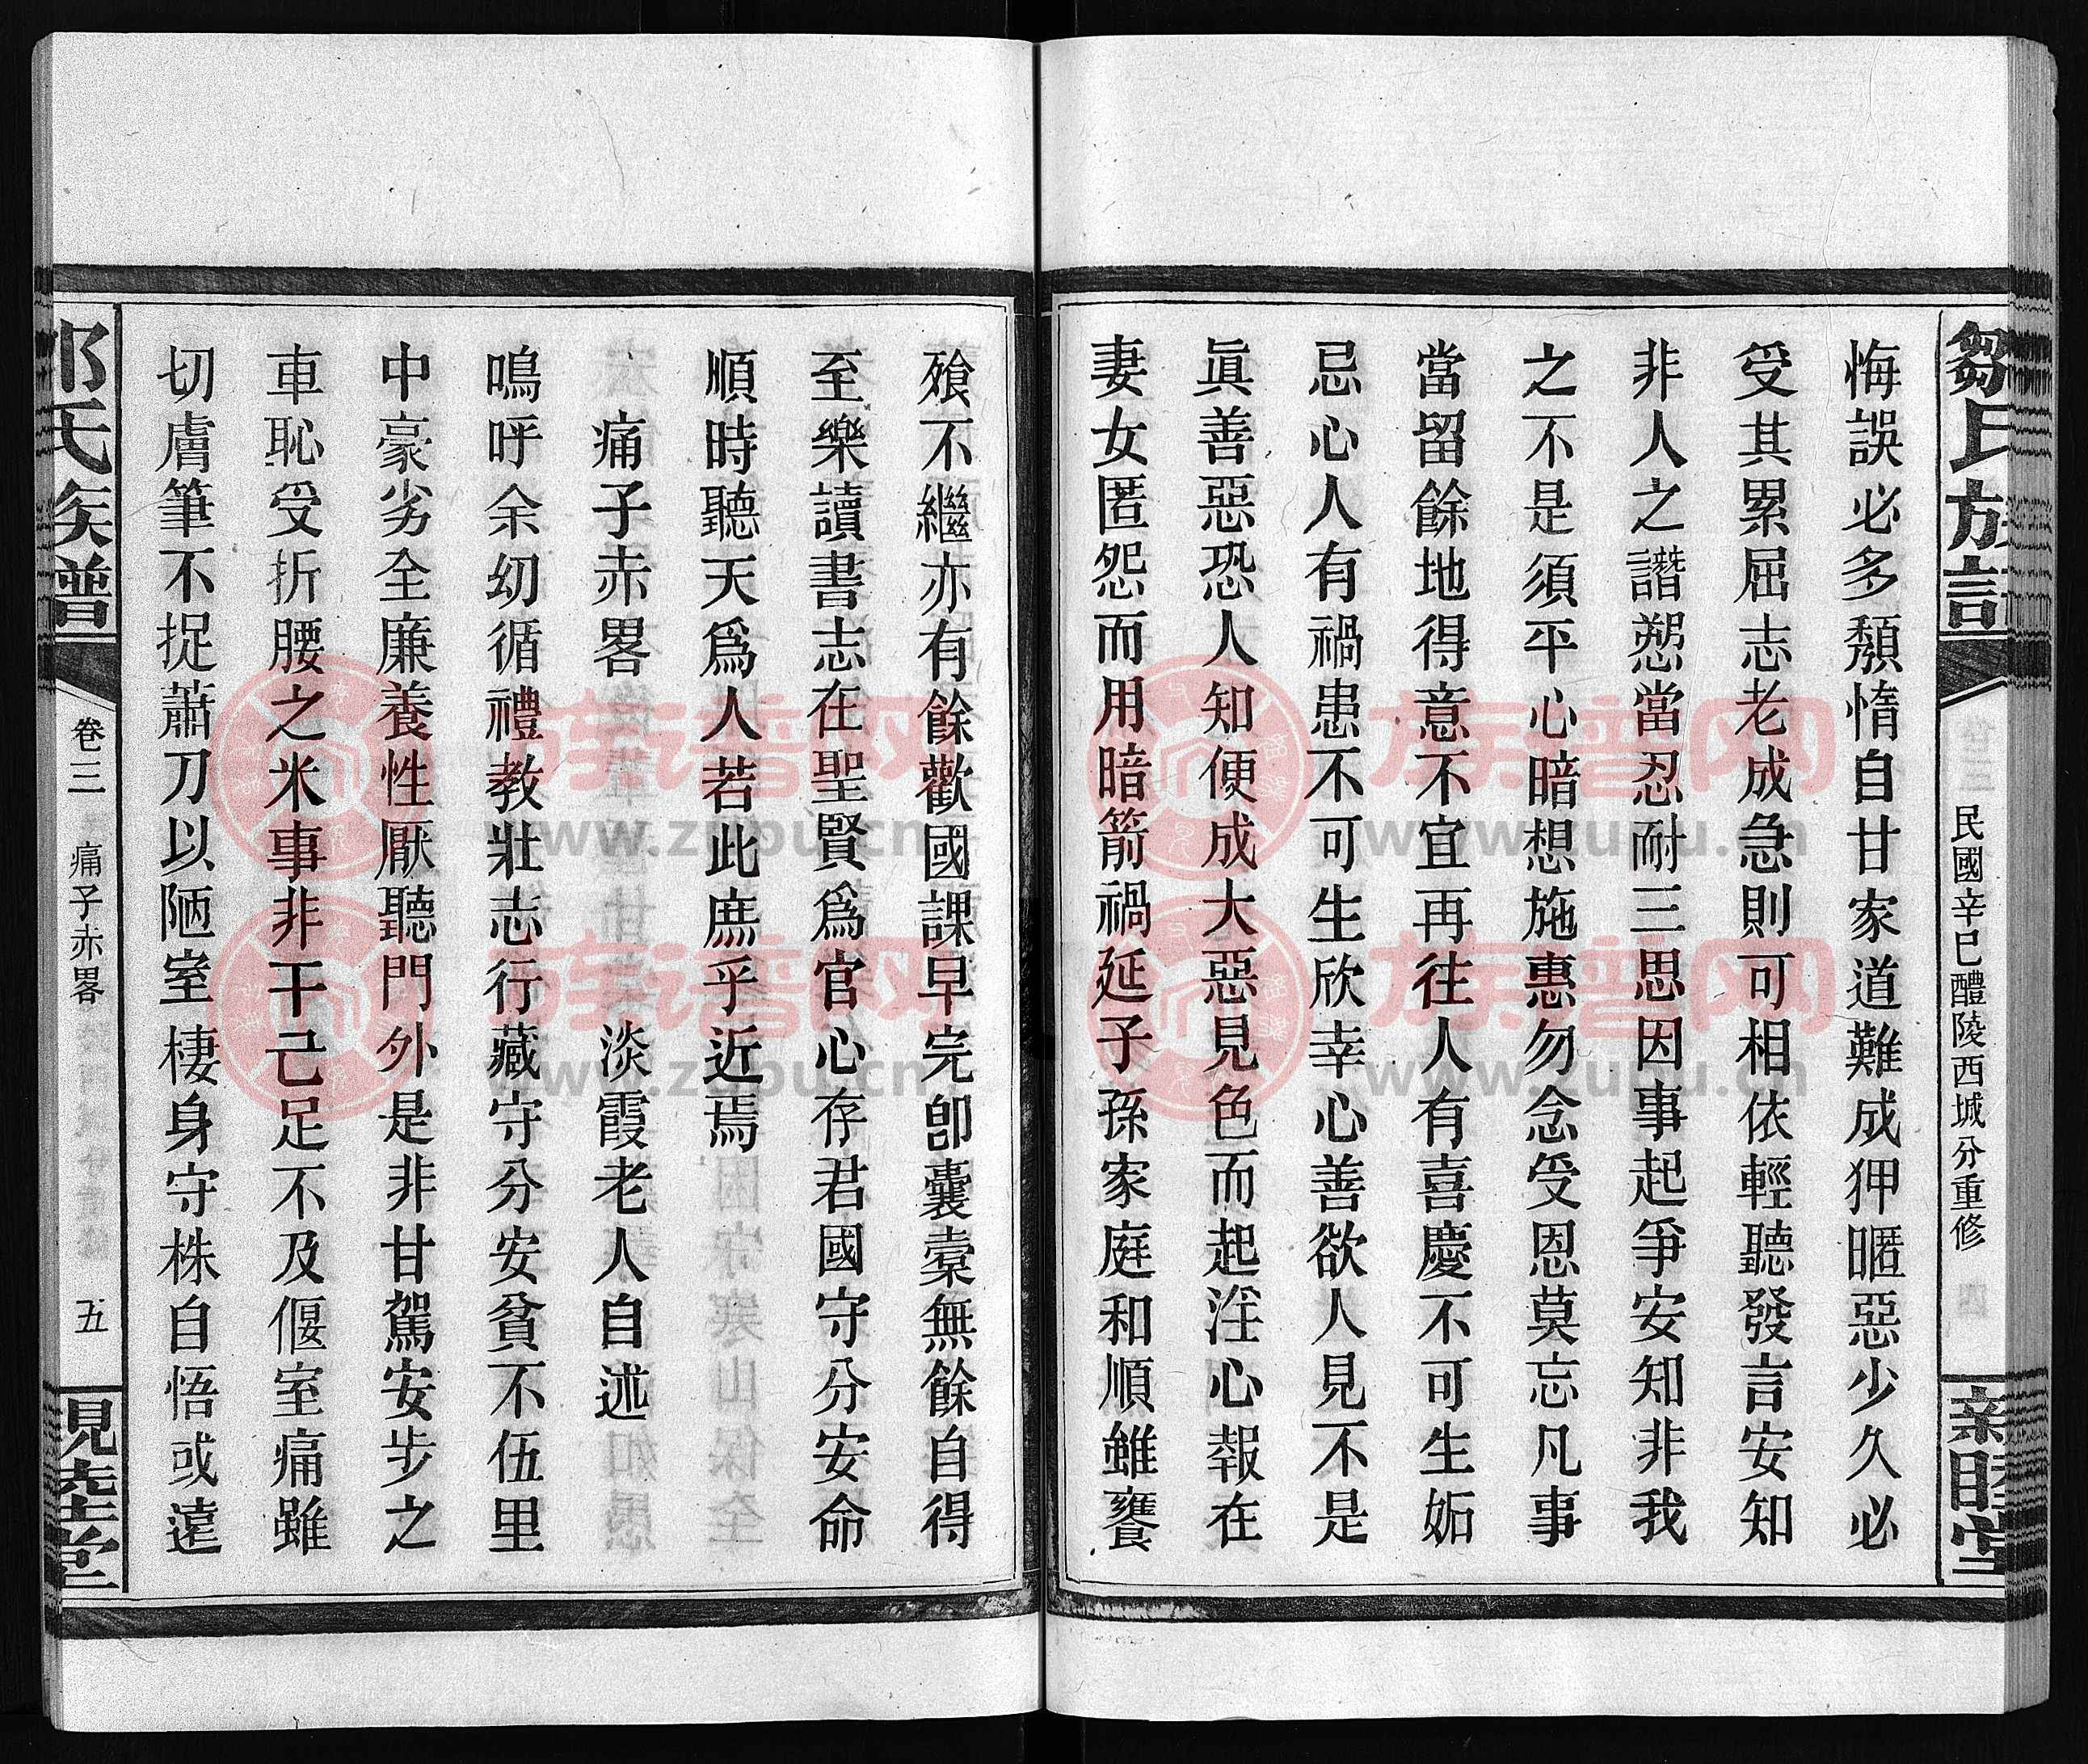 鄒氏族譜
民國辛巳醴陵西城分重修
親睦堂
悔誤必多頹惰自甘家道難成狎暱惡少久必
受其累屈志老成急則可相依輕聽發言安知
非人之譖愬當忍耐三思因事起爭安知非我
之不是須平心暗想施惠勿念受恩莫忘凡事
當留餘地得意不宜再往人有喜慶不可生妬
忌心人有禍患不可生欣幸心善欲人見不是
眞善惡恐人知便成大惡見色而起淫心報在
妻女匿怨而用暗箭禍延子孫家庭和順雖饔
飱不繼亦有餘歡國課早完卽囊槖無餘自得
至樂讀書志在聖賢爲官心存君國守分安命
順時聽天爲人若此庶乎近焉
痛子赤畧 淡霞老人自述
嗚呼余幼循禮教壯志行藏守分安貧不伍里
中豪劣全廉養性厭聽門外是非甘駕安步之
車恥受折腰之米事非干己足不及偃室痛雖
切膚筆不捉蕭刀以陋室棲身守株自悟或遠
鄒氏族譜
卷三 痛子赤畧 五
親睦堂
族谱网
www.zupu.cn
族谱网
www.zupu.cn
族谱网
www.zupu.cn
族谱网
www.zupu.cn